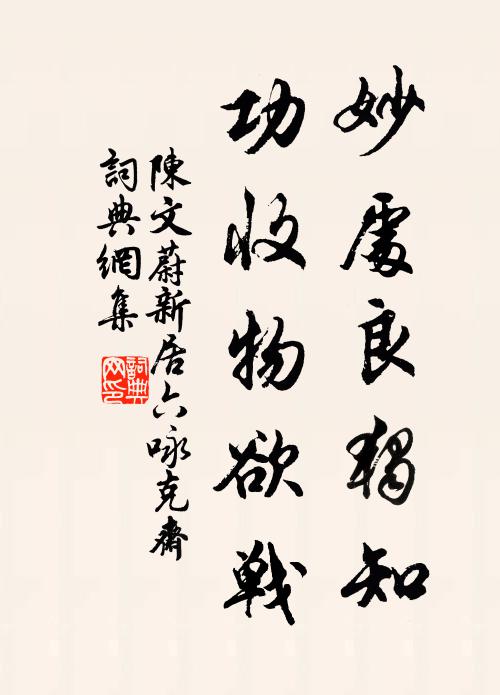 妙處良獨知
功收物欲戰
陳文蔚新居六咏克齋
詞典網集
詞典
网印